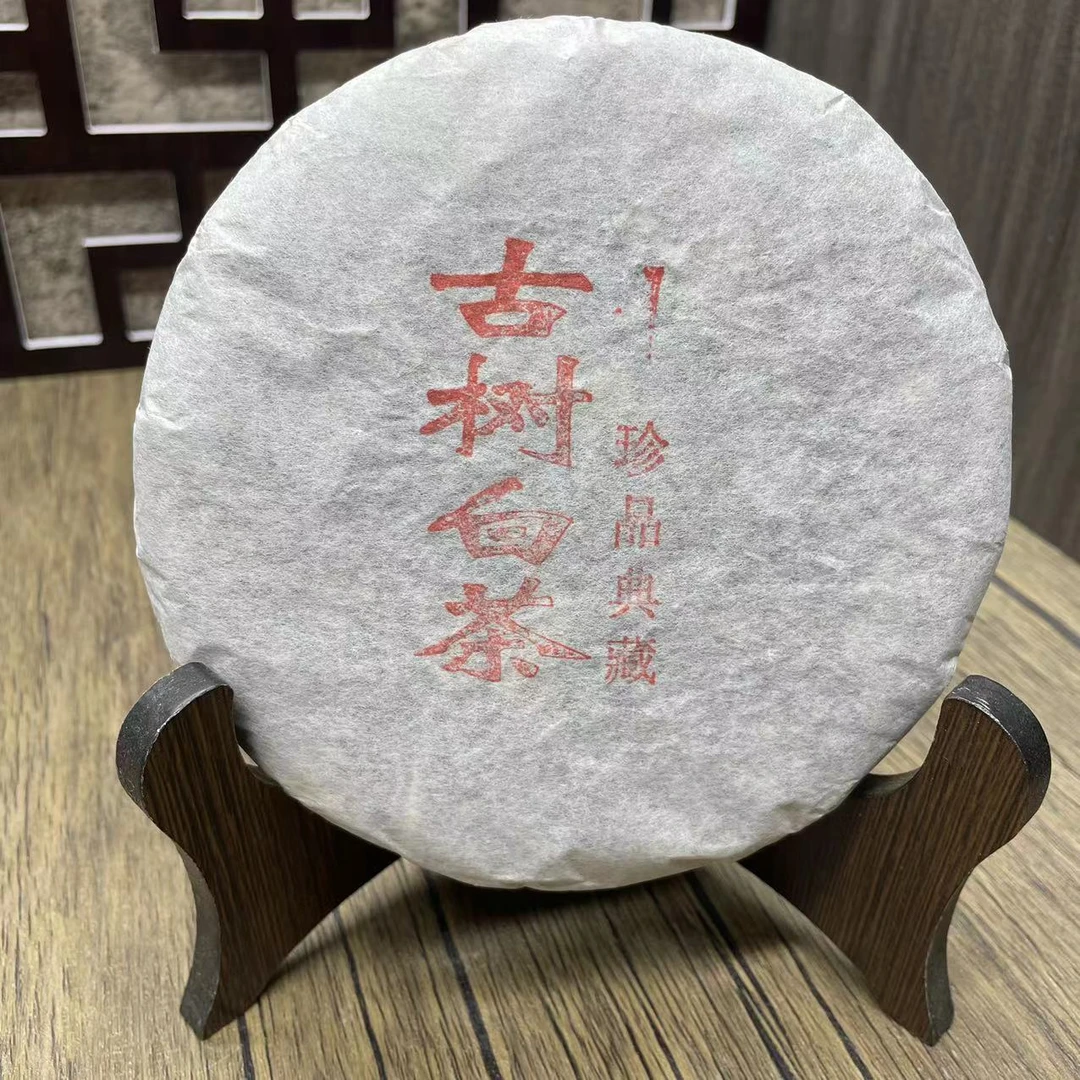 珍品典藏
古树白茶